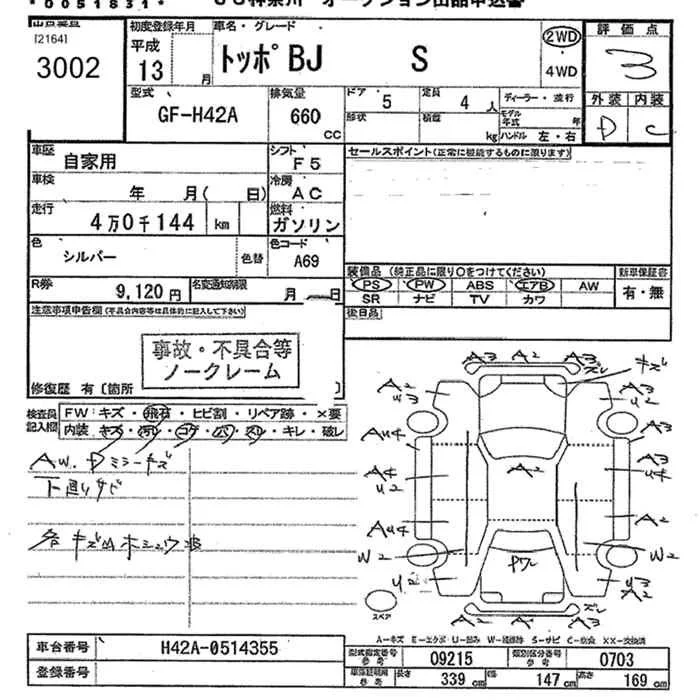 *0051831*
[2164]
3002
初度登録年月
平成
13 月
車名・グレード
トッポBJ S
2WD
4WD
評価点
3
型式
GF-H42A
排気量
660
CC
ドア
5
定員
4 人
ディーラー・並行
形状
積載
kg
モデル年式 年
ハンドル 左・右
外装 内装
D C
車歴
自家用
シフト
F5
セールスポイント(正常に機能するものに限ります)
車検
年 月( 日)
冷房
AC
走行
4万0千144 km
燃料
ガソリン
色
シルバー
色替
色コード
A69
装備品 (純正品に限り○をつけてください)
新車保証書
PS PW ABS エアB AW
SR ナビ TV カワ
有・無
R券
9,120円
名変通知期限
月 日
後日品
注意事項申告欄(不具合内容等は具体的に記入して下さい)
事故・不具合等
ノークレーム
修復歴 有〔箇所
検査員
記入欄
FW: キズ・飛石・ヒビ割・リペア跡・×要
内装・キズ・ヨゴレ・コゲ・ハゲ・スリ・キレ・破レ
AW. Dミラーキズ
下廻りサビ
A3 A2 A3
ズレ
キズ
A2
U3
A3
U2
AU4
A3
A4
U2
A2
A3
U4
AU4
A2
W2
W2
PW
U2
A3
U2
A2 A2 A2
ズレ
スペア
A-キズ E-エクボ U-凹み W-補修跡 S-サビ C-腐食 XX-交換済
車台番号
H42A-0514355
登録番号
型式指定番号
参考
09215
類別区分番号
参考
0703
参考
長さ
339 cm
幅
147 cm
高さ
169 cm